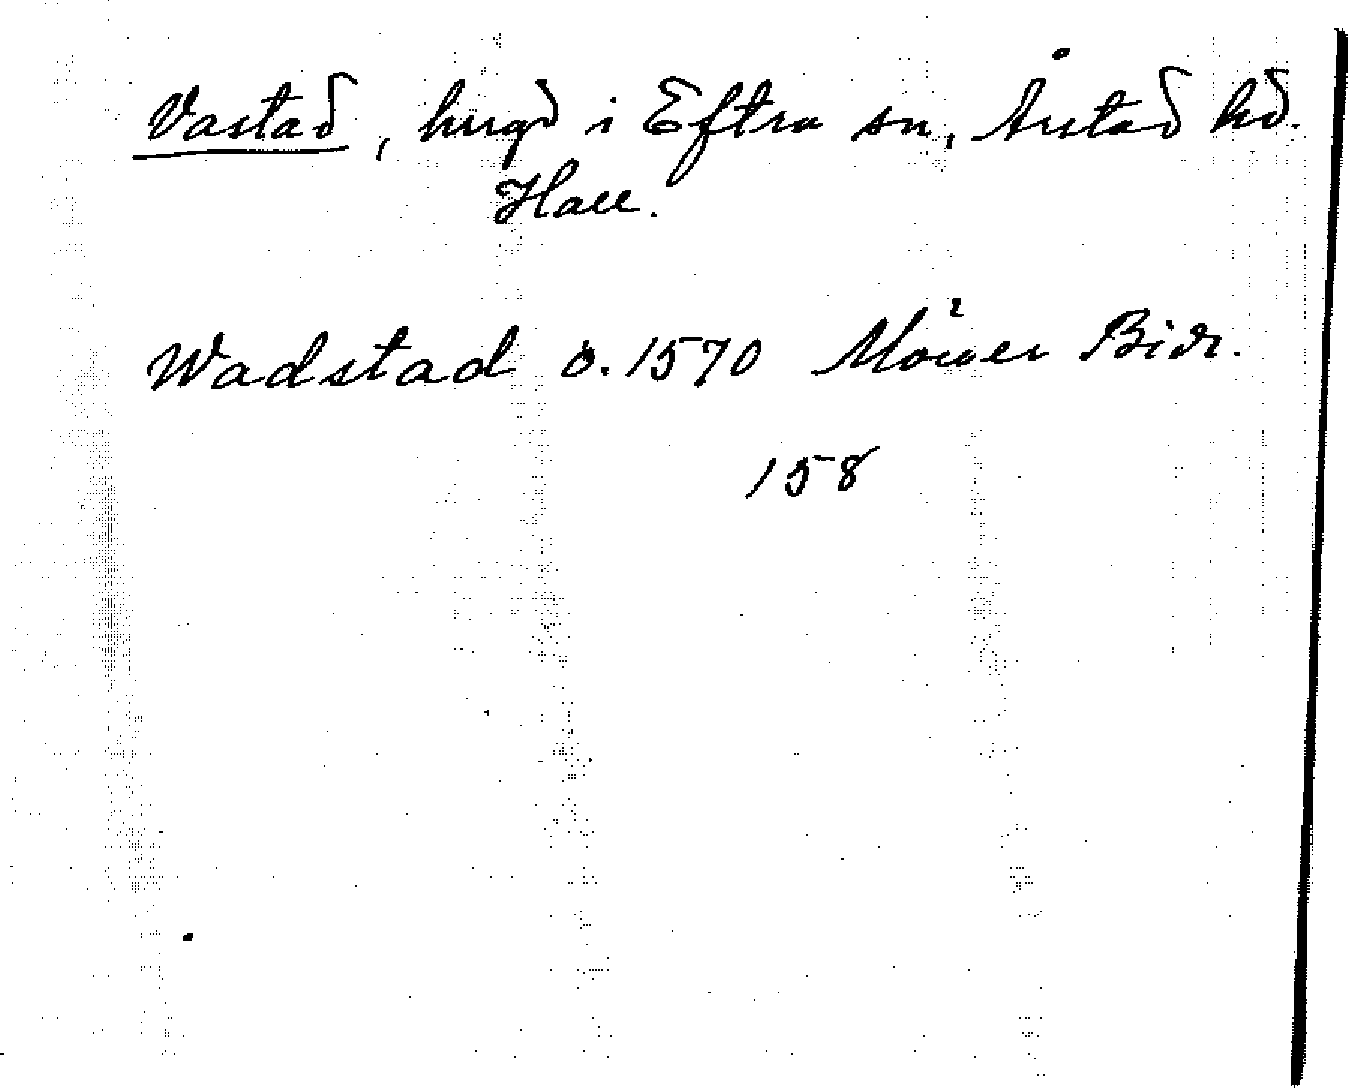 Vastad, hmgd i Eftra sn, Årstad hd.
Hall.
Wadstad o. 1570 Möller Bidr.
158